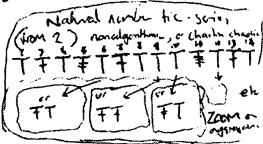 Natural number tic-series,
(from 2) nonalgorithmic, or chaitin chaotic
2 3 4 5 6 7 8 9 10 11 12 13 14
or
or
or
etc
ZOOM or
aggregates.